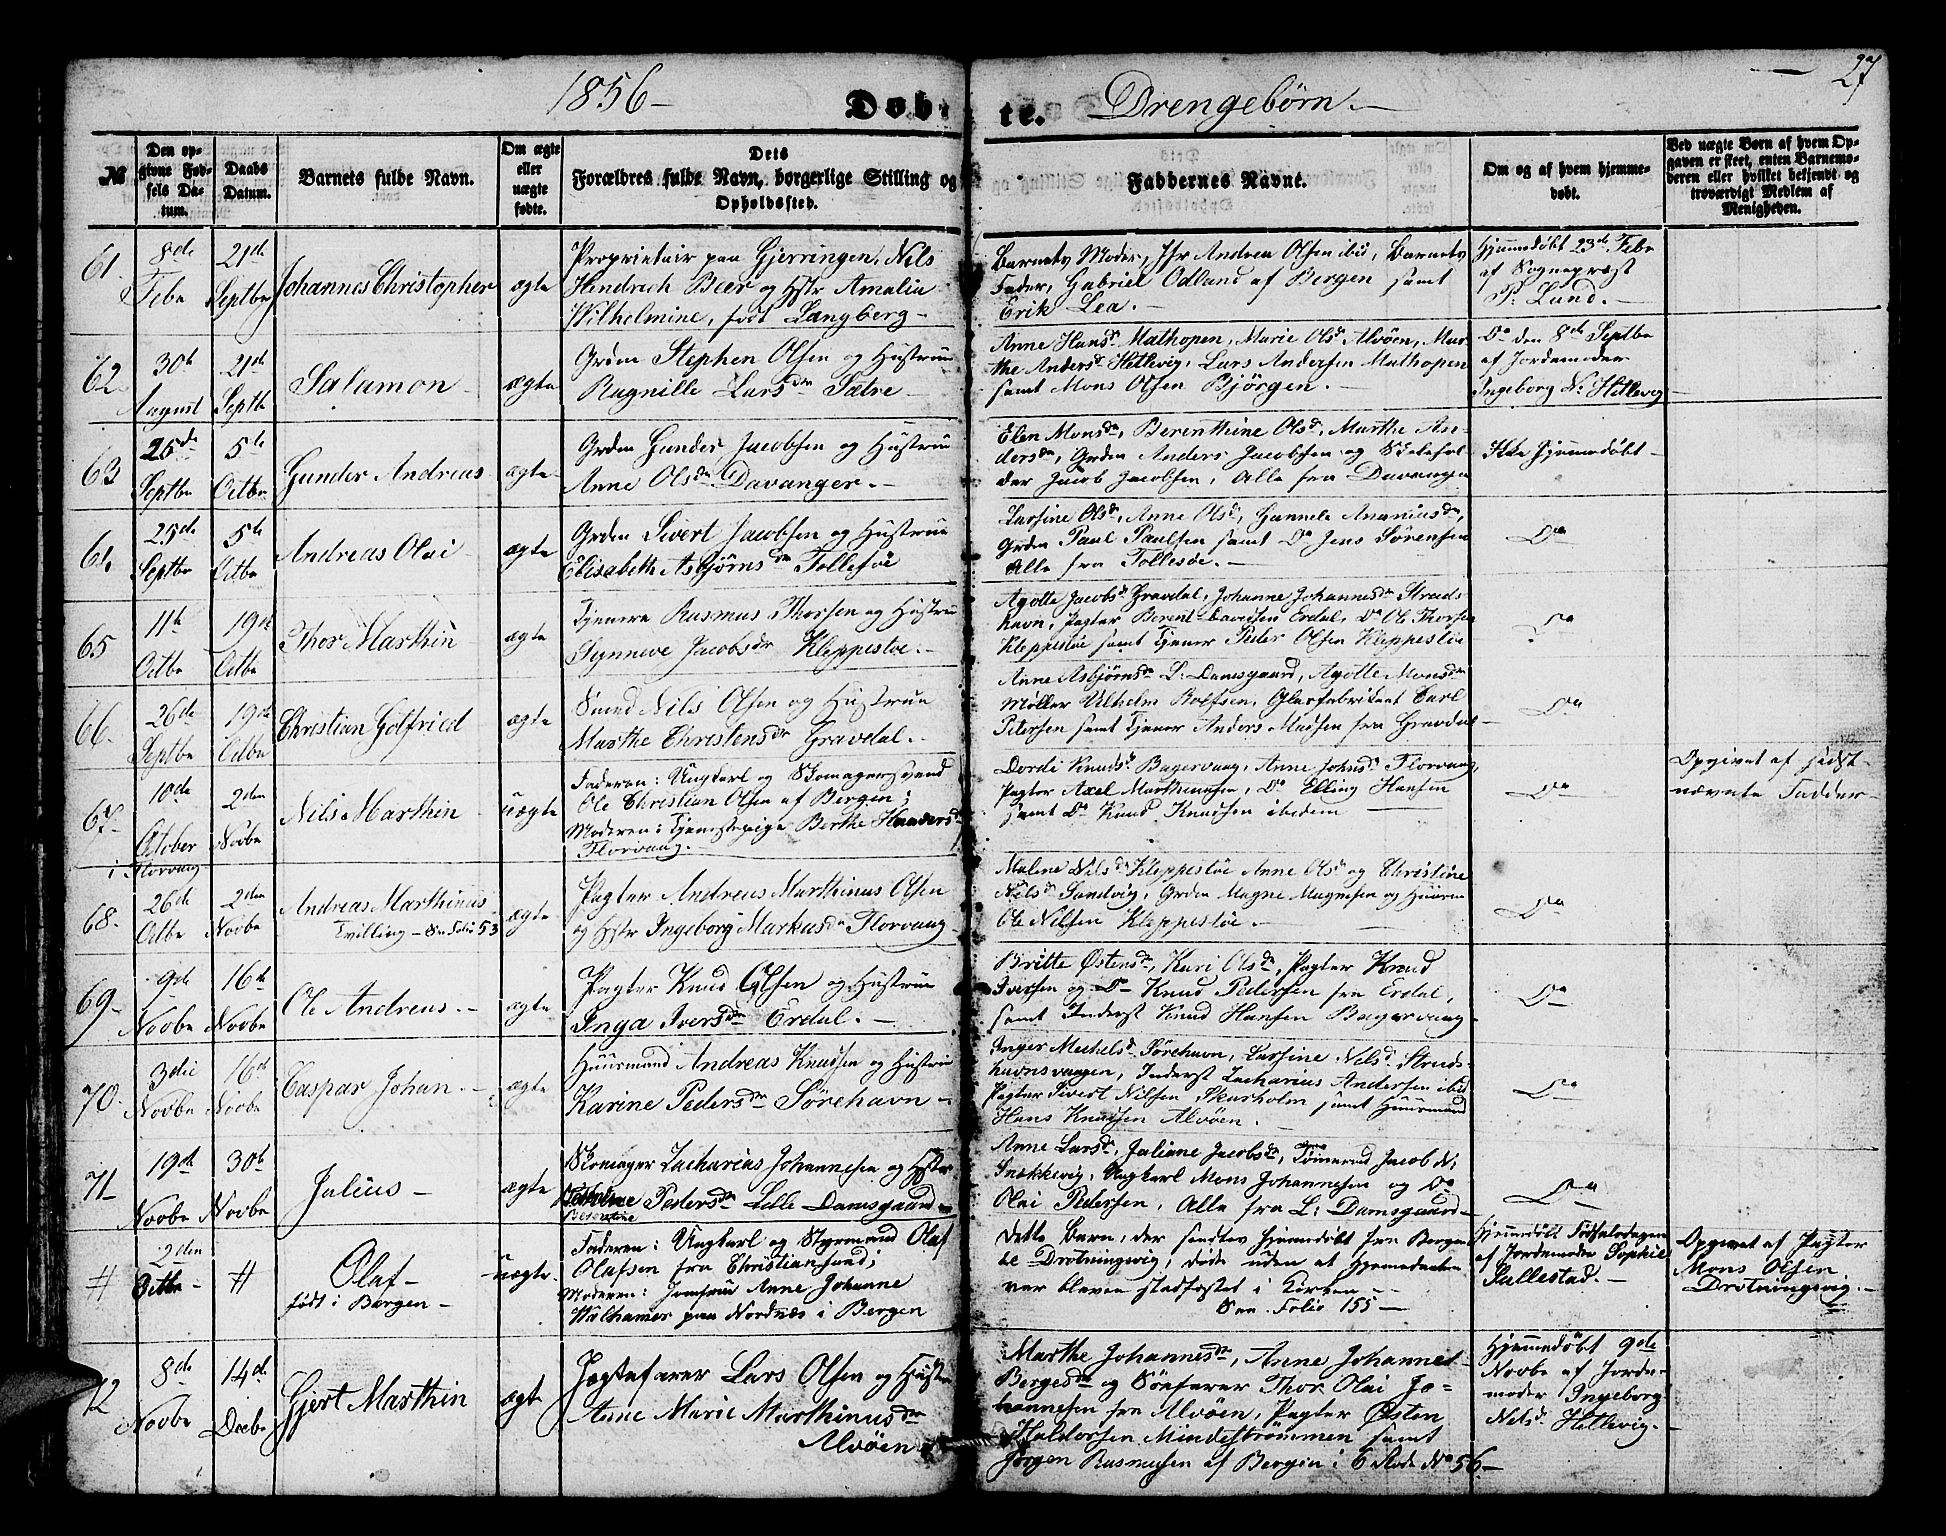 1856 – Døb- te. Drengebørn. – 27
№
Den op-
givne Fød-
sels Da-
tum.
Daabs
Datum.
Barnets fulde Navn.
Om ægte
eller
uægte
fødte.
Dets
Forældres fulde Navn, borgerlige Stilling og
Opholdssted.
Faddernes Navne.
Om og af hvem hjemme-
døbt.
Ved uægte Børn af hvem Op-
gaven er skeet, enten Barnemo-
deren eller hvilket bekjendt og
troværdigt Medlem af
Menigheden.
61.
8de
Febr
21de
Septbr
Johannes Christopher
ægte
Proprietair paa Gjerringen, Nils
Hindrich Beer og Hstr Amalia
Wilhelmine, født Langberg –
Barnets Moder, Jfr Andrea Olsen ibid, Barnets
Fader, Gabriel Odland af Bergen samt
Erik Lea. –
Hjemmedøbt 23de Febr
af Sognepræst
P: Lund. –
62
30te
August
21de
Septb
Salamon –
ægte
Grdm Stephen Olsen og Hustrue
Ragnille Larsdr Sætre –
Anne Hansd Mathopen, Marie Olsd Alvøen, Mar-
the Andersd Hetlevig, Lars Andersen Mathopen
samt Mons Olsen Bjørgen. –
Do den 8de Septbr
af Jordemoder
Ingeborg N: Hetlevig
63
25de
Septbr
5te
Octbr
Gunder Andreas
ægte
Grdm Gunder Jacobsen og Hustrue
Anne Olsdr Davanger. –
Elen Monsdr, Berenthine Olsd, Marthe An-
dersdr, Grdm Anders Jacobsen og
der Jacob Jacobsen, Alle fra Davanger
Ikke hjemmedøbt –
64
25de
Septbr
5te
Octbr
Andreas Olai –
ægte
Grdm Sivert Jacobsen og Hustrue
Elisabeth Asbjørnsdr Follesøe
Larsine Olsd, Anne Olsd, Hannele Ananiasdr,
Grdm Paul Paulsen samt Do Jens Sørensen
Alle fra Follesøe. –
Do
65
11te
Octbr
19de
Octbr
Thor Marthin
ægte
Tjenere Rasmus Thorsen og Hustrue
Synneve Jacobsdr Kleppestøe. –
Agotte Jacobsd Gravdal, Johanne Johannesdr Struds-
havn, Pagter Berent Davidsen Erdal, Do Ole Thorsen
Kleppestøe samt Tjener Peder Olsen Kleppestøe
Do
66.
26de
Septbr
19de
Octbr
Christian Gotfried
ægte
Smed Nils Olsen og Hustrue
Marthe Christensdr Gravdal. –
Anne Asbjørnsdr L: Damsgaard, Agotte Monsdr
Møller Vilhelm Rolfsen, Glasfabrikant Carl
Petersen samt Tjener Anders Madsen fra Gravdal –
Do
67.
10de
October
i Florvaag
2den
Novbr
Nils Marthin
uægte
Faderen: Ungkarl og Skomagersvend
Ole Christian Olsen af Bergen;
Moderen: Tjenestepige Berthe Haaversdr
Florvaag.
Dordi Knudsd Bagervaag, Anne Johnsd Florvaag,
Pagter Axel Marthinusen, Do Elling Hansen
samt Do Knud Knudsen ibidem
Do
Opgivet af sidst-
nævnte Fadder –
68.
26de
Octbr
2den
Novbr
Andreas Marthinus
Tvilling – See Folio 53
ægte
Pagter Andreas Marthinus Olsen
og Hstr Ingeborg Markusdr Florvaag
Malene Nilsd Kleppestøe Anne Olsd og Christine
Nilsd Sandvig, Grdm Magne Magnesen og Huusm
Ole Nilsen Kleppestøe. –
Do
69
9de
Novbr
16de
Novbr
Ole Andreas. –
ægte
Pagter Knud Olsen og Hustrue
Inga Iversdr Erdal. –
Britte Østensdr, Kari Olsdr, Pagter Knud
Iversen og Do Knud Pedersen fra Erdal,
samt Inderst Knud Hansen Bagervaag
Do
70.
3die
Novbr
16de
Novbr
Caspar Johan. –
ægte
Huusmand Andreas Knudsen og Hustrue
Karine Pedersdr Sørehavn –
Inger Michelsd Sørehavn, Larsine Nilsd Struds-
havnsvaagen, Inderst Zacharias Andersen ibid
Pagter Sivert Nilsen Skarholm samt Huusmand
Hans Knudsen Alvøen. –
Do
71
19de
Novbr
30te
Novbr
Julius –
ægte
Skomager Zacharias Johannesen og Hstr
Pedersdr Lille Damsgaard
Anne Larsdr, Juliane Jacobsdr, Tømmermd Jacob N:
Snekkevig, Ungkarl Mons Johannesen og Do
Olai Pedersen, Alle fra L: Damsgaard –
Do
#
2den
Octbr –
#
Olaf –
født i Bergen –
uægte.
Faderen: Ungkarl og Styrmand Olaf
Olafsen fra Christiansund;
Moderen: Jomfrue Anne Johanne
Walhamer paa Nordnæs i Bergen
Dette Barn, der sendtes hjemmedøbt fra Bergen
til Drotningvig, døde uden at Hjemmedaaben
var bleven stadfæstet i Kirken –
See Folio 155 –
Hjemmedøbt Fødselsdagen
af Jordemoder Sophie
Sallestad. –
Opgivet af Pagter
Mons Olsen
Drotningsvig. –
72
8de
Novbr
14de
Decbr
Gjert Marthin
ægte
Jægtefarer Lars Olsen og Hustr
Anne Marie Marthinusdr
Alvøen
Marthe Johannesdr, Anne Johannes
Bergesdr og Søefarer Thor Olai Jo-
hannesen fra Alvøen, Pagter Østen
Haldorsen Mindestrømmen samt
Jørgen Rasmusen af Bergen i 6 Rode No 56 –
Hjemmedøbt 9de
Novbr af Jorde-
moder Ingeborg
Nilsd Hetlevig. –